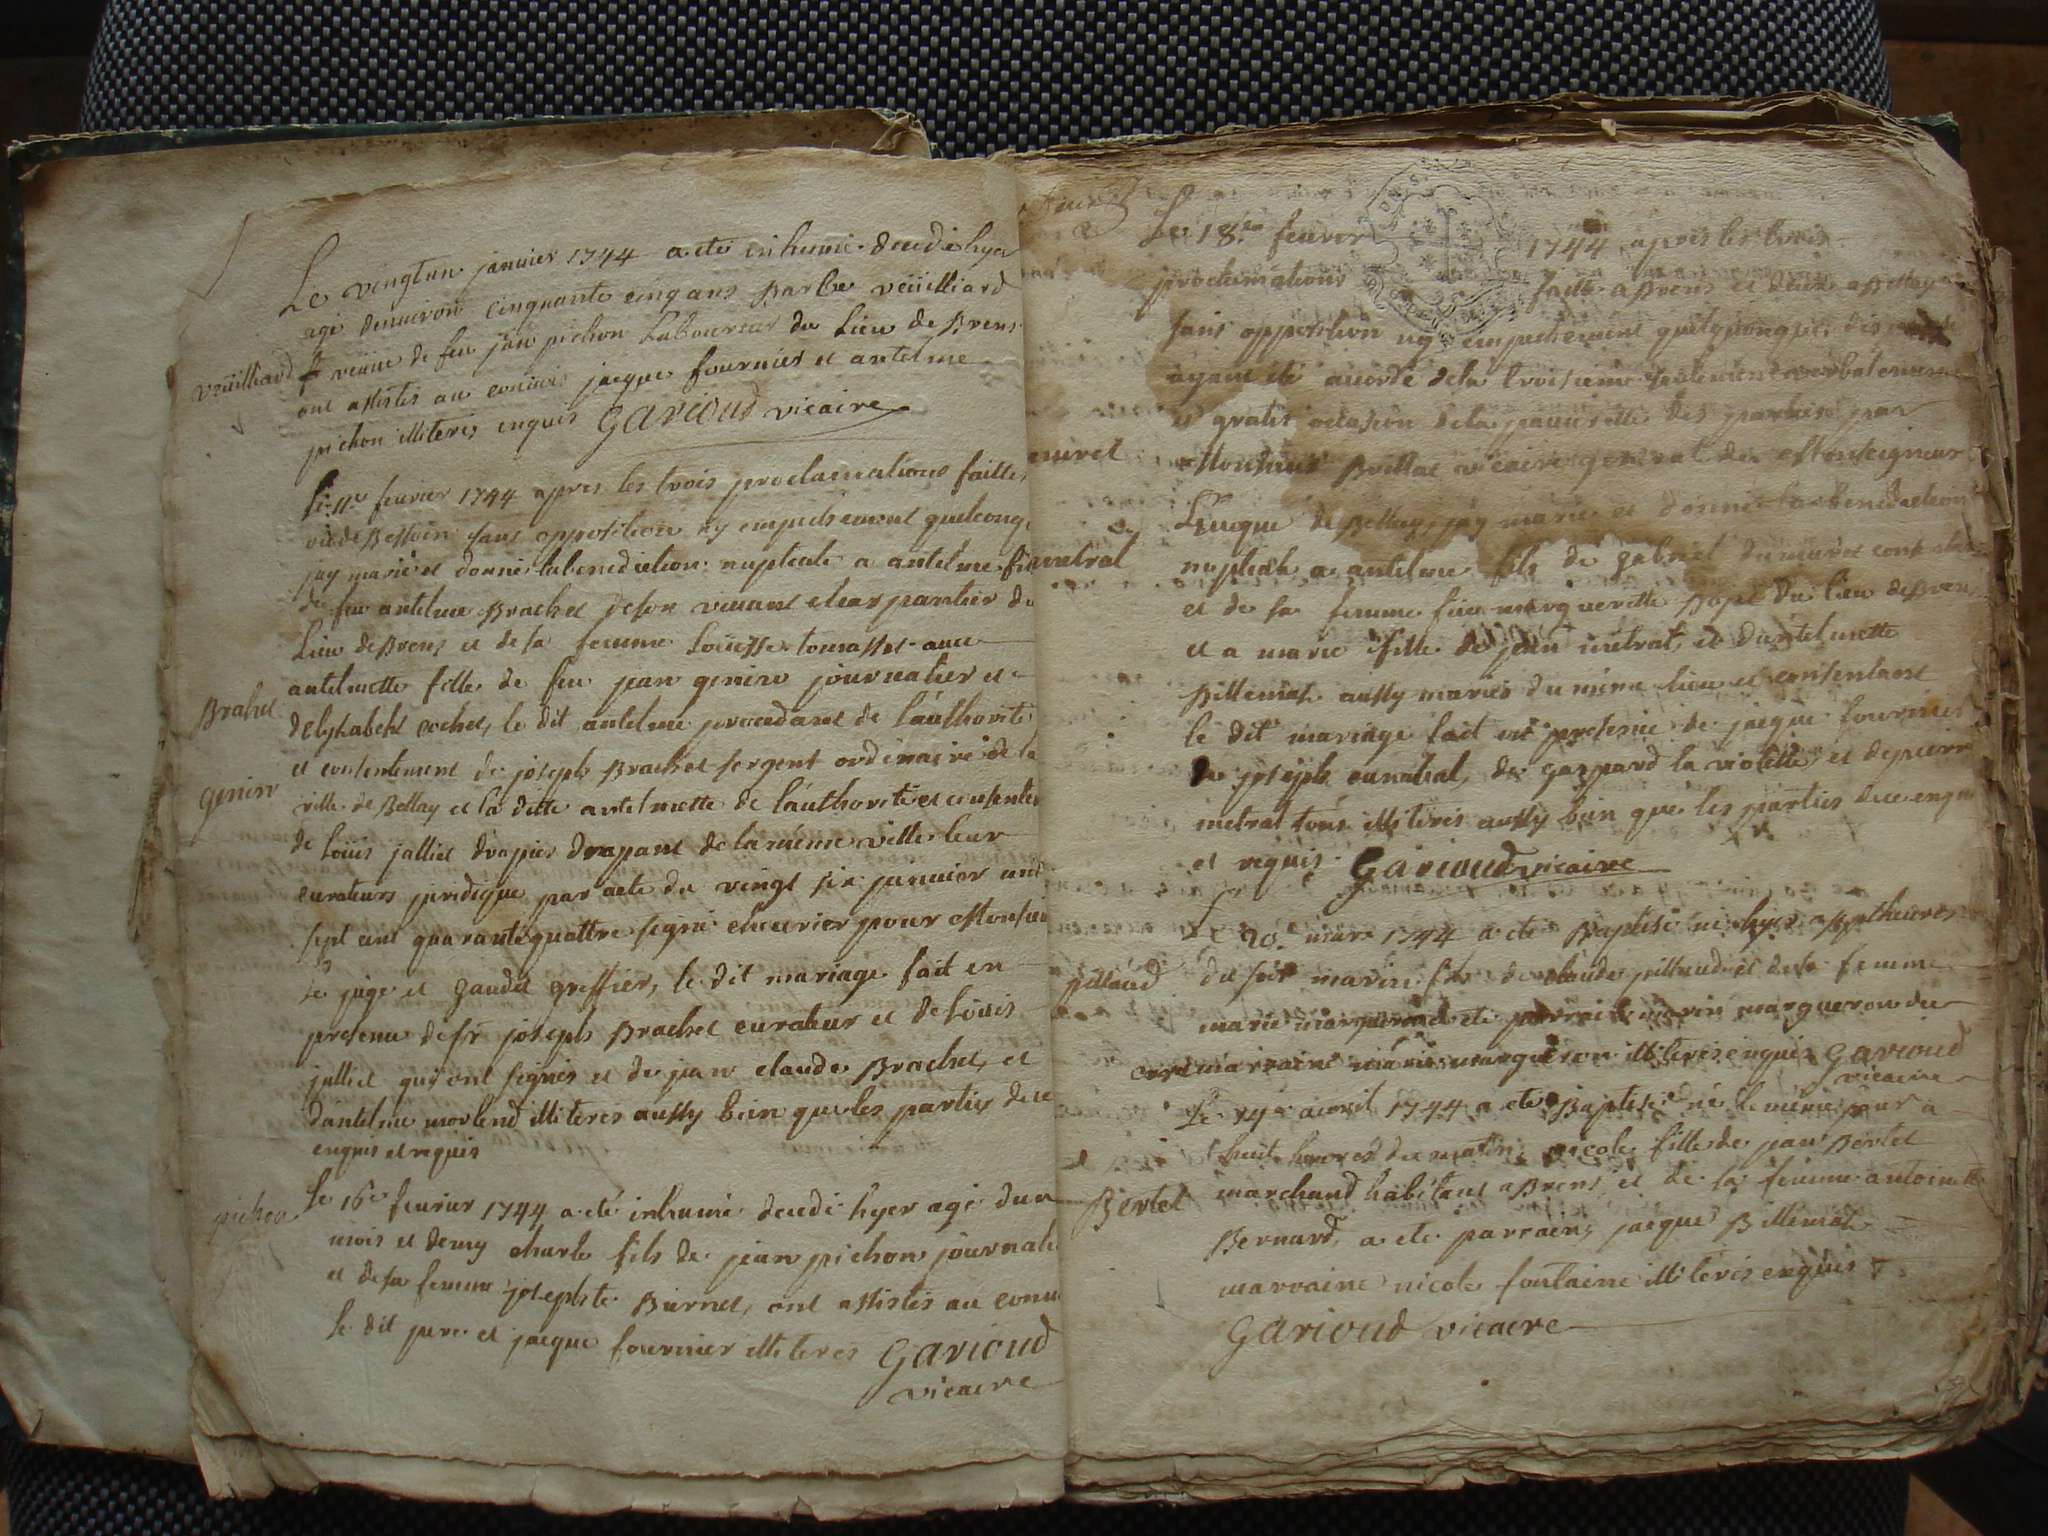 Le vingtun janvier 1744 a eté inhumé decedé hyer
agé denuiron cinquante cinq ans Barbe veüilliard
veüilliard
veuue de feu jan pichon Laboureur du Lieu de Brens
ont assistés au conuois jacque fournier et antelme
pichon illiterés enquis Garioud vicaire
Le 11e feurier 1744 apres les trois proclamations faittes
sans opposition ny empechement quelconque
jay marié et donné la benediction nuptiale a antelme fils
de feu antelme Brachet de son viuant charpantier du
Lieu de Brens et de sa femme Loüisse tomasset auec
antelmette fille de feu jean genin journalier et
Brahet
delysabeht cochet, le dit antelme procedant de lauthorité
et consentement de joseph Brachet sergent ordinaire de la
genin
ville de Bellay et la ditte antelmette de lauthorité et consentem
de Loüis jalliet drapier drapant de la méme ville leur
curateurs juridique par acte du vingt six januier mil
sept cent quarante quattre signé cheurier pour Monsieur
Le juge et gaudet greffier, le dit mariage fait en
presence de sr joseph Brachet curateur et de Loüis
julliet qui ont signés et de jean claude Brachet, et
dantelme morlend illiterés aussy bien que les parties de ce
enquis et requis
Le 16e feurier 1744 a eté inhumé decedé hyer agé dun
pichon
mois et demy charle fils de jean pichon journalie
et de sa femme josephte Burnet, ont assistés au conuo
le dit pere et jacque fournier illiteres Garioud
vicaire
Le 18me feurier 1744 apres les trois
proclamations faitte a Brens et deux a Bellay
sans opposition ny empechement quelquonque, dispense
ayant eté accordé de la troisieme seulement verbalement
et gratis occasion de la pauureté des parties par
muret
Monsieur Brillat vicaire general de Monseigneur
L'eueque de Bellay, jay marié et donné la benediction
metral
nuptiale a antelme fils de gabriel dumuret consentant
et de sa femme feue marguerite pape du lieu de Brens
et a marie fille de jean métrat, et dantelmette
Billemat aussy mariés du méme lieu et consentant
le dit mariage fait en presence de jacque fournier
de joseph cunatral, de gaspard la violette et de pierre
metral tous illiterés aussy bien que les parties de ce enquis
et requis Garioud vicaire
Le 20e mars 1744 a eté Baptisé né hyer a sept heures
pillaud
du soir marin fils de claude pillaud et de sa femme
marie margueron a eté parrain marin margueron de
marraine marie margueron illiterés enquis Garioud
vicaire
Le 19e auril 1744 a eté Baptisé né le méme jour a
huit heures du matin nicole fille de jean Bertet
Bertet
marchand habitant a Brens, et de sa femme antoinette
Bernard, a eté parraen, jacque Billemat
marraine nicole fontaine illiterés enquis
Garioud vicaire